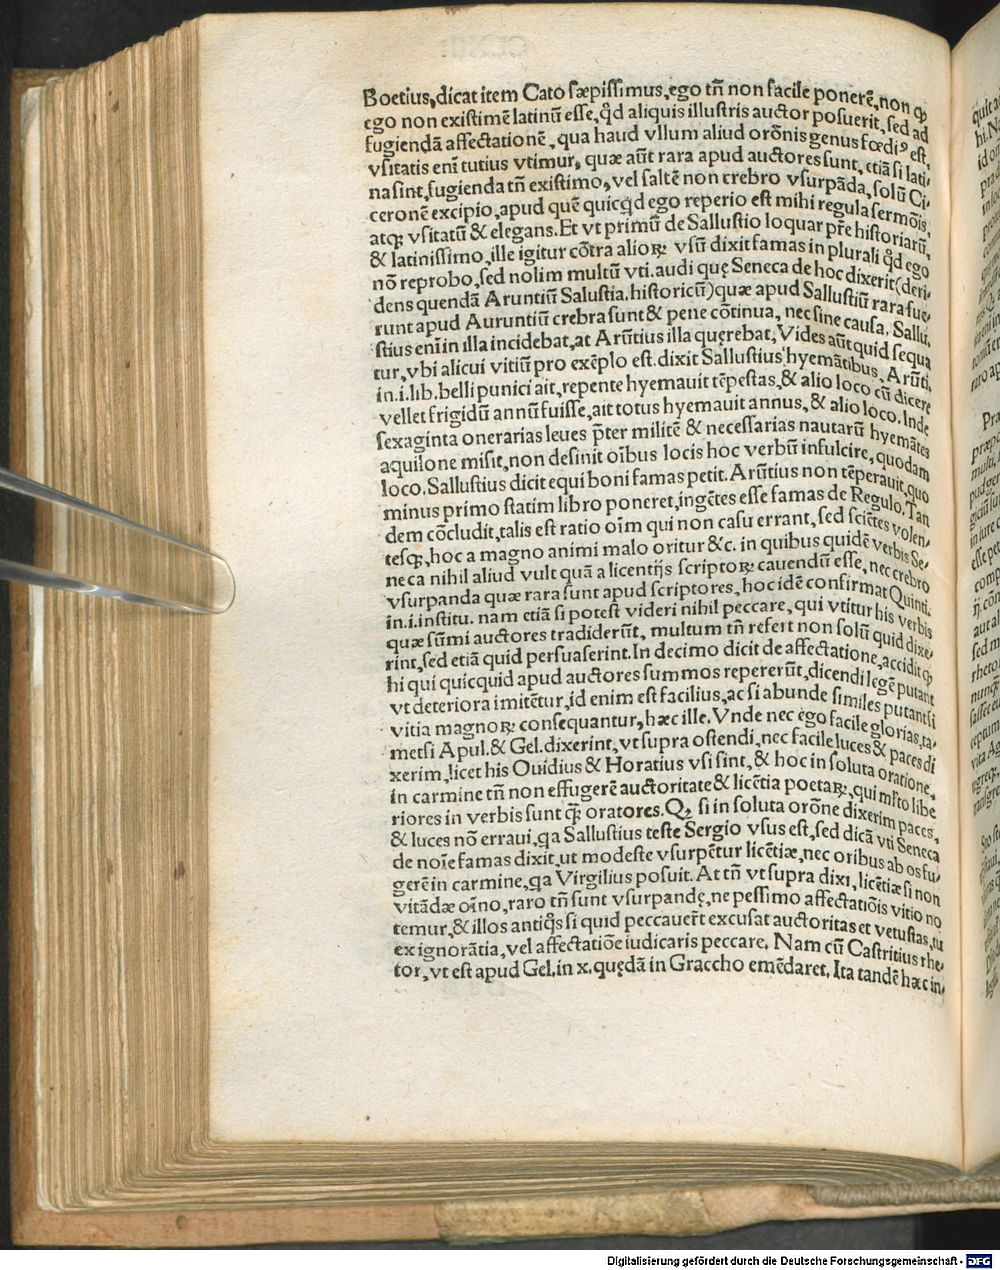 Boetius, dicat item Cato sæpissimus, ego tñ non facile ponerẽ, non ꝙ
ego non existimẽ latinũ esse, qd̃ aliquis illustris auctor posuerit, sed ad
fugiendã affectationẽ, qua haud vllum aliud orõnis genus fœdiꝰ est,
vsitatis enĩ tutius vtimur, quæ aũt rara apud auctores sunt, etiã si lati-
na sint, fugienda tñ existimo, vel saltẽ non crebro vsurpãda, solũ Ci-
ceronẽ excipio, apud quẽ quicqd̃ ego reperio est mihi regula sermõis,
atqꝫ vsitatũ & elegans. Et vt primũ de Sallustio loquar pr̃e historiarũ,
& latinissimo, ille igitur cõtra alioꝝ vsũ dixit famas in plurali qd̃ ego
nõ reprobo, sed nolim multũ vti. audi quę Seneca de hoc dixerit (deri-
dens quendã Aruntiũ Salustia. historicũ) quæ apud Sallustiũ rara fue-
runt apud Auruntiũ crebra sunt & pene cõtinua, nec sine causa, Sallu.
stius enĩ in illa incidebat, at Arũtius illa quęrebat, Vides aũt quid sequa
tur, vbi alicui vitiũ pro exẽplo est. dixit Sallustius hyemãtibus, Arũti,
in.i.lib.belli punici ait, repente hyemauit tẽpestas, & alio loco cũ dicere
vellet frigidũ annũ fuisse, ait totus hyemauit annus, & alio loco. Inde
sexaginta onerarias leues p̃ter militẽ & necessarias nautarũ hyemãtes
aquilone misit, non desinit oĩbus locis hoc verbũ infulcire, quodam
loco. Sallustius dicit equi boni famas petit. Arũtius non tẽperauit, quo
minus primo statim libro poneret, ingẽtes esse famas de Regulo. Tan
dem cõcludit, talis est ratio oĩm qui non casu errant, sed sciẽtes volen-
tesqꝫ, hoc a magno animi malo oritur &c. in quibus quidẽ verbis Se-
neca nihil aliud vult quã a licentijs scriptoꝝ cauendũ esse, nec crebro
vsurpanda quæ rara sunt apud scriptores, hoc idẽ confirmat Quinti.
in.i.institu. nam etiã si potest videri nihil peccare, qui vtitur his verbis
quæ sũmi auctores tradiderũt, multum tñ refert non solũ quid dixe-
rint, sed etiã quid persuaserint. In decimo dicit de affectatione, accidit ꝙ
hi qui quicquid apud auctores summos repererũt, dicendi legẽ putant
vt deteriora imitẽtur, id enim est facilius, ac si abunde similes putant si
vitia magnoꝝ consequantur, hæc ille. Vnde nec ego facile glorias, ta-
metsi Apul. & Gel. dixerint, vt supra ostendi, nec facile luces & paces di
xerim, licet his Ouidius & Horatius vsi sint, & hoc in soluta oratione,
in carmine tñ non effugerẽ auctoritate & licẽtia poetaꝝ, qui mr̃to libe
riores in verbis sunt q̃ oratores. Qꝫ si in soluta orõne dixerim paces,
& luces nõ erraui, qa Sallustius teste Sergio vsus est, sed dicã vti Seneca
de noĩe famas dixit, ut modeste vsurpẽtur licẽtiæ, nec oribus ab os fu-
gerẽ in carmine, qa Virgilius posuit. At tñ vt supra dixi, licẽtiæ si non
vitãdæ oĩno, raro tñ sunt vsurpandę, ne pessimo affectatiõis vitio no
temur, & illos antiq̃s si quid peccauer̃t excusat auctoritas et vetustas, tu
ex ignorãtia, vel affectatiõe iudicaris peccare. Nam cũ Castritius rhe-
tor, vt est apud Gel. in x. quędã in Graccho emẽdaret. Ita tandẽ hæc in-
Digitalisierung gefördert durch die Deutsche Forschungsgemeinschaft - DFG